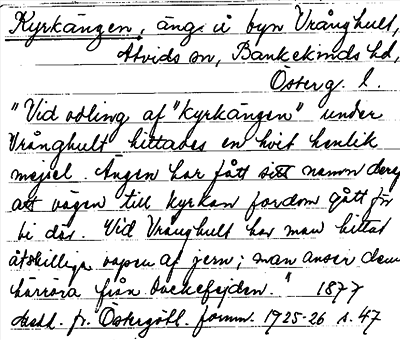 Kyrkängen, äng i byn Vrånghult,
Åtvids sn, Bankekinds hd,
Österg. l.
"Vid odling af "Kyrkängen" under
Vrånghult hittades en hvit benlik
mejsel. Ängen har fått sitt namn deraf
att vägen till kyrkan fordom gått för
bi där. Vid Vrånghult har man hittat
åtskilliga vapen af jern; man anser dem
härröra från Dackefejden." 1877
Medd. fr. Östergötl. fornm. 1925-26 s. 47